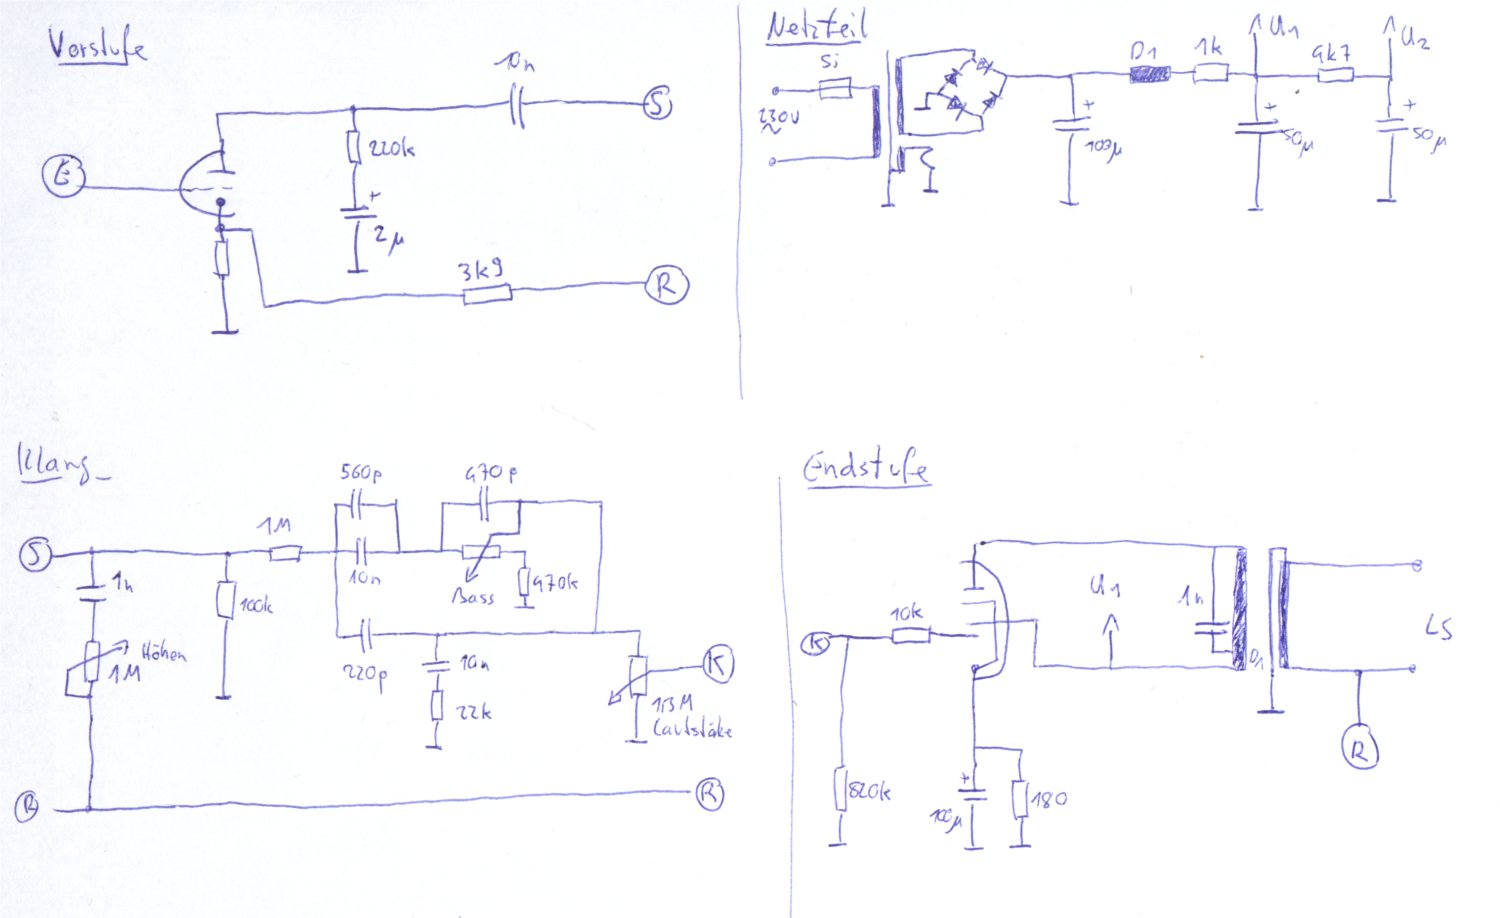 Vorstufe
10n
S
E
220k
+
2µ
3k9
R
Netzteil
Si
230V
~
D1
1k
U1
4k7
U2
+
100µ
+
50µ
+
50µ
Klang_
S
1n
Höhen
1M
100k
1M
560p
10n
470p
Bass
470k
220p
10n
22k
K
1,3M
Lautstäke
R
R
Endstufe
K
10k
820k
+
100µ
180
U1
1n
D1
LS
R